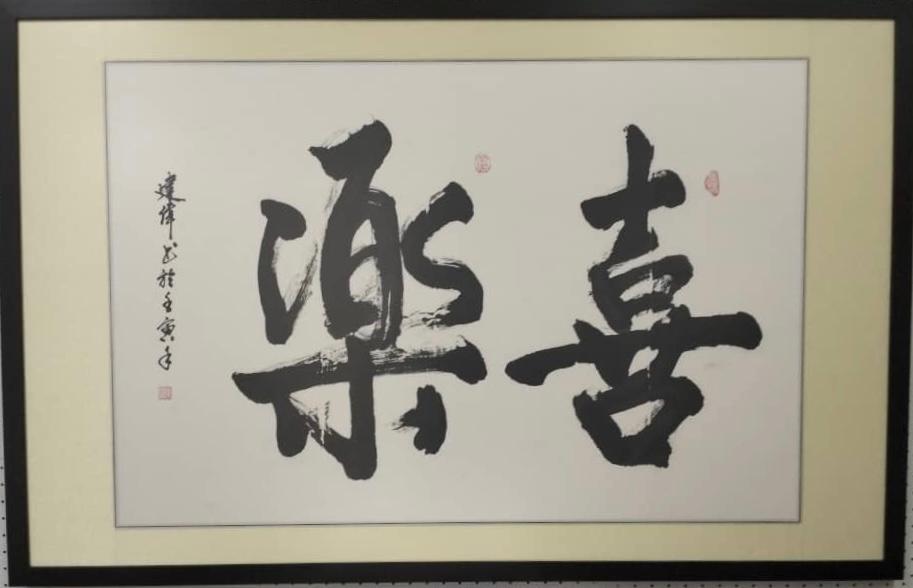 喜樂
建偉书於壬寅年